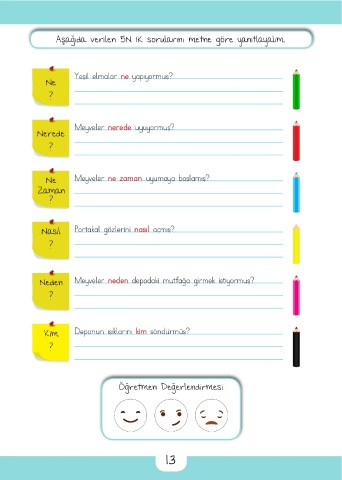 Aşağıda verilen 5N 1K sorularını metne göre yanıtlayalım.
Ne
?
Yeşil elmalar ne yapıyormuş?
Nerede
?
Meyveler nerede uyuyormuş?
Ne
Zaman
?
Meyveler ne zaman uyumaya başlamış?
Nasıl
?
Portakal gözlerini nasıl açmış?
Neden
?
Meyveler neden depodaki mutfağa girmek istiyormuş?
Kim
?
Deponun ışıklarını kim söndürmüş?
Öğretmen Değerlendirmesi
13